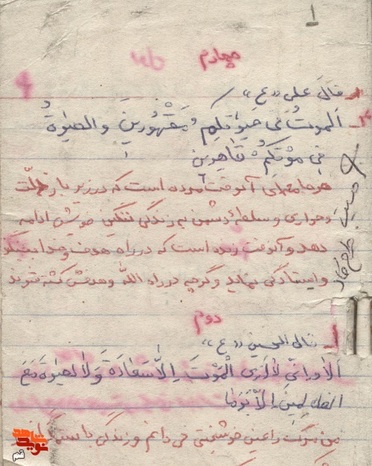 ۱
چهارم
قال علی «ع»
الموتُ فی حیوتکم مَقْهورینَ و الحیوةُ
فی مَوْتِکُمْ قاهِرین
هر جامعه‌ای آنوقت مرده است که در زیر بار ذلت
و خواری و سلطه دشمن به زندگی ننگین خویش ادامه
دهد و آنوقت زنده است که در راه هدف و خدا
و ایستادگی نماید و گرچه در راه الله و هدفش کشته شوند
دوم
قال الحسین «ع»
اَلا وَ اِنّی لا اَرَی الْمَوْتَ اِلاّ سَعادَةً وَ لا الحیوةَ مَعَ
الظالمین اِلاّ بَرَما
من مرگ را عین خوشبختی می دانم و زندگی با ستمگران
نوید